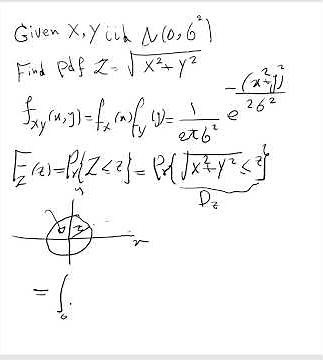 Given X, Y iid N(0, 6²)
Find Pdf Z = √X² + Y²
f_xy(x,y) = f_x(x) f_y(y) = 1/2π6² e^-(x²+y²)/26²
F_Z(z) = Pr{Z ≤ z} = Pr{√X²+Y² ≤ z}
D_z
y
z
x
= ∫₀